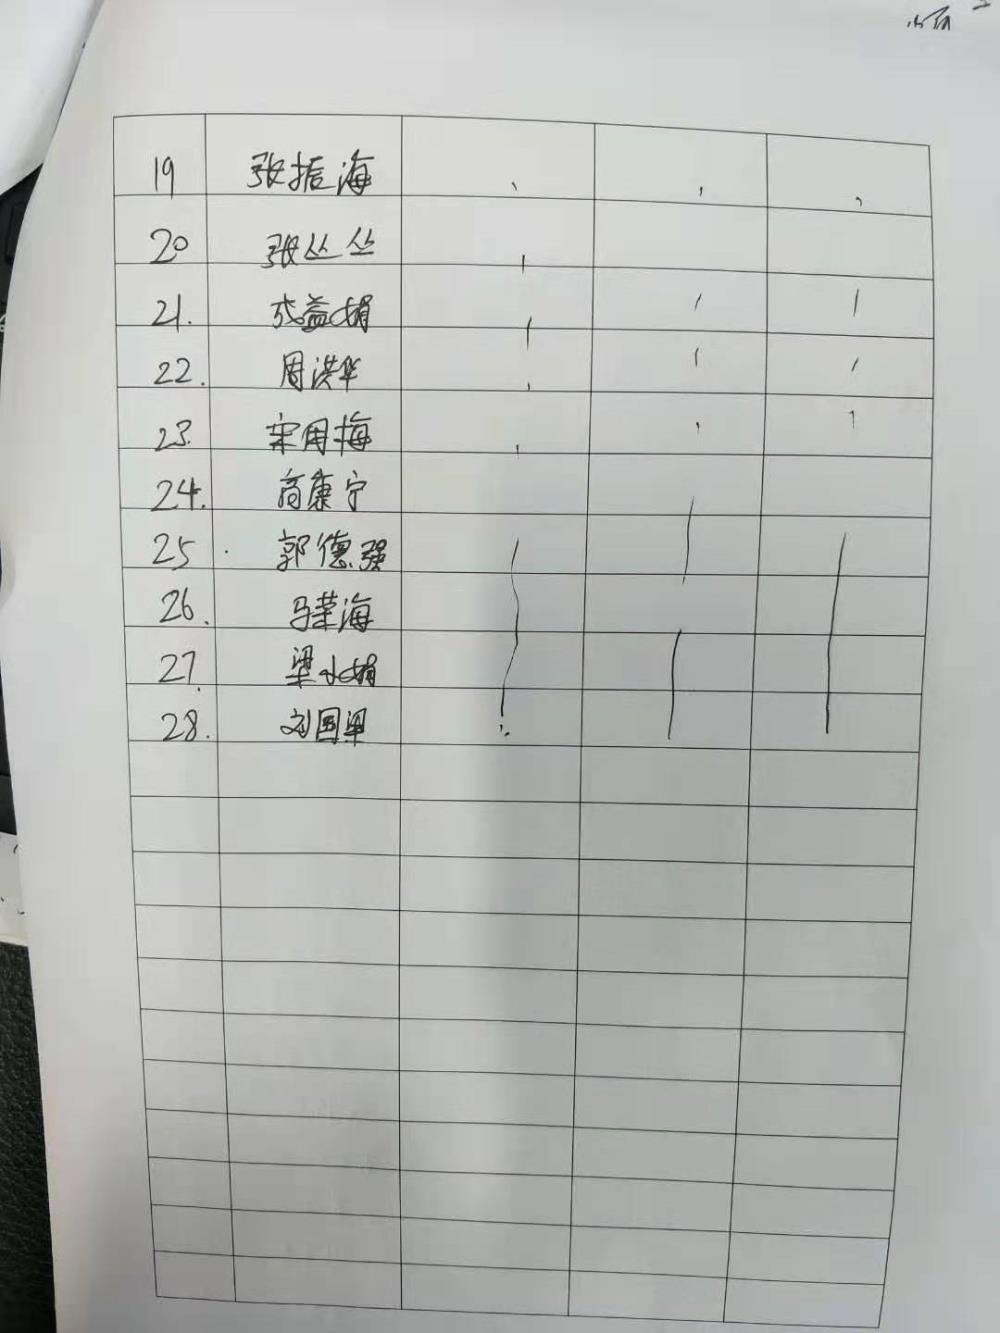 19 张振海
20 张丛丛
21. 成益娟
22. 周洪华
23. 宋用梅
24. 高康宁
25 郭德强
26. 马荣海
27. 梁小娟
28. 刘国梁